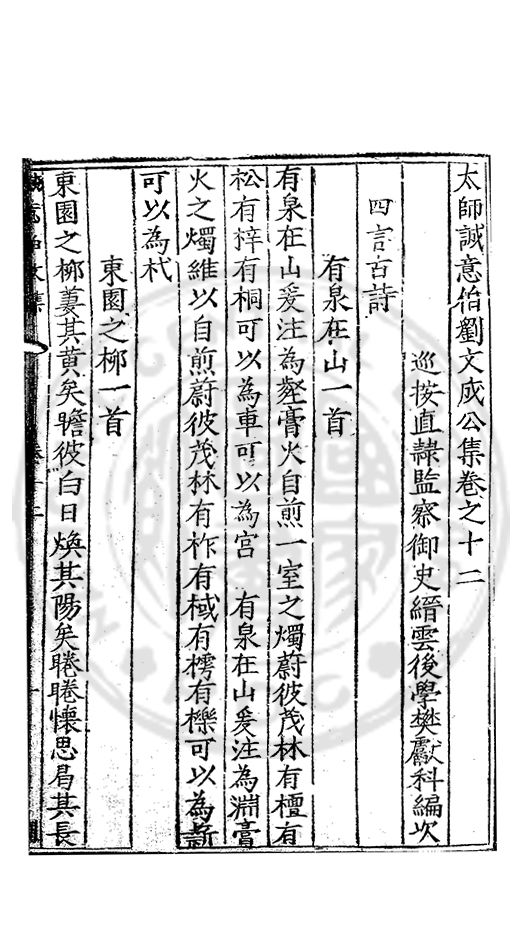 太師誠意伯劉文成公集卷之十二
巡按直隸監察御史縉雲後學樊獻科編次
四言古詩
有泉在山一首
有泉在山爰注為壑膏火自煎一室之燭蔚彼茂林有檀有
松有梓有桐可以為車可以為宮 有泉在山爰注為淵膏
火之燭維以自煎蔚彼茂林有柞有棫有樗有櫟可以為薪
可以為杙
東園之柳一首
東園之柳萋其黃矣瞻彼白日煥其陽矣睠睠懷思曷其長